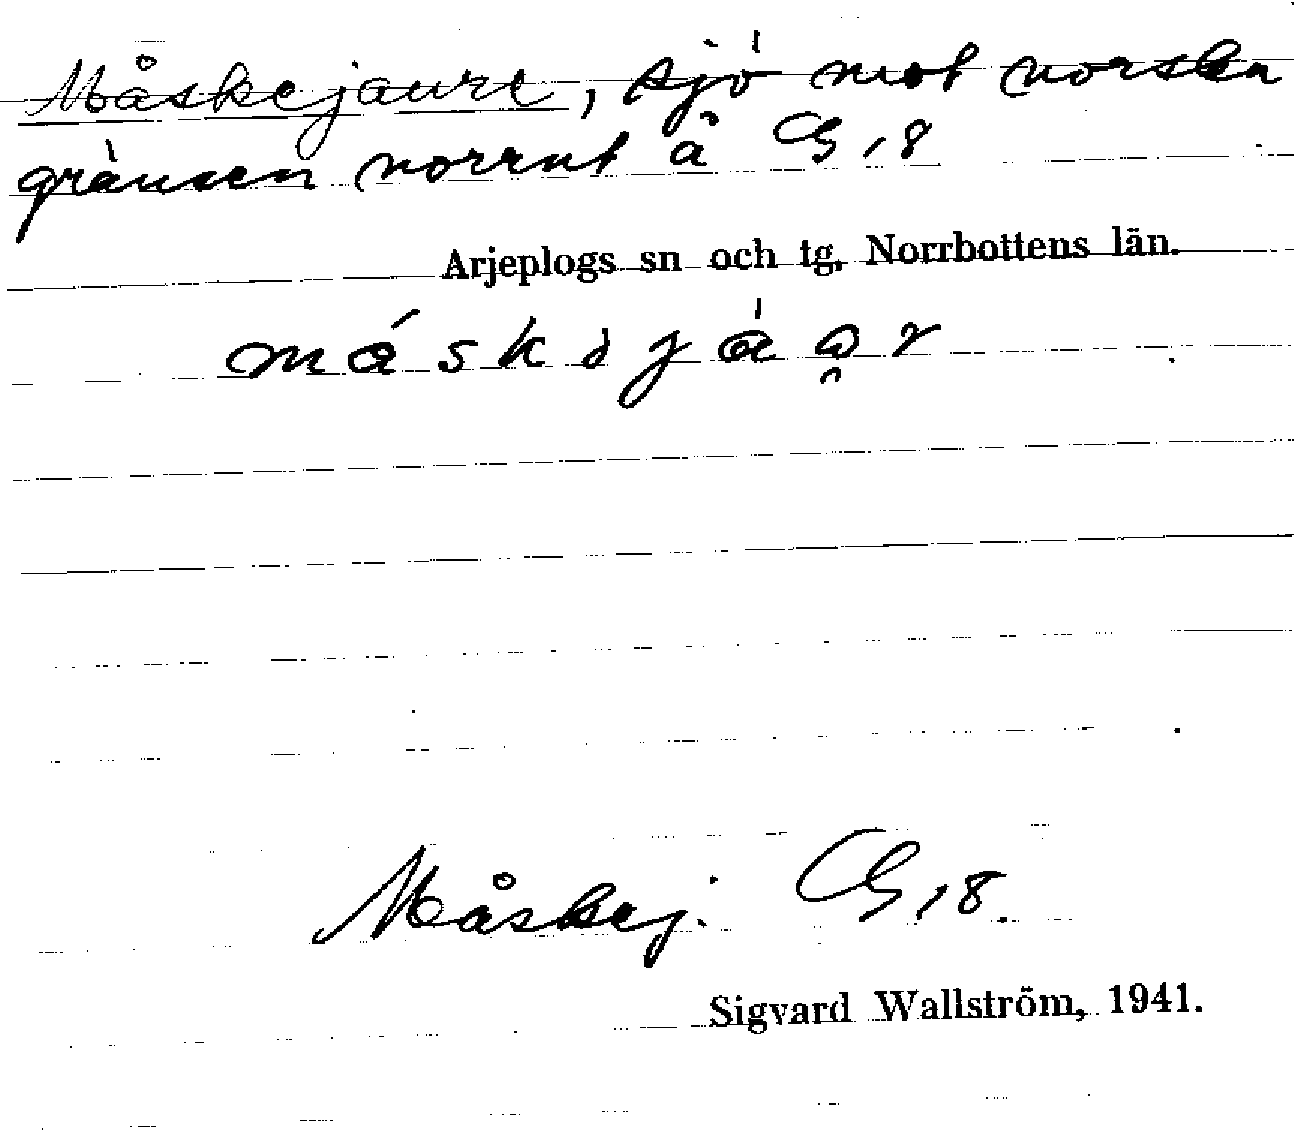 Måskejaure, sjö mot norska
gränsen norrut å G,8
Arjeplogs sn och tg, Norrbottens län.
Måskej. G,8.
Sigvard Wallström, 1941.